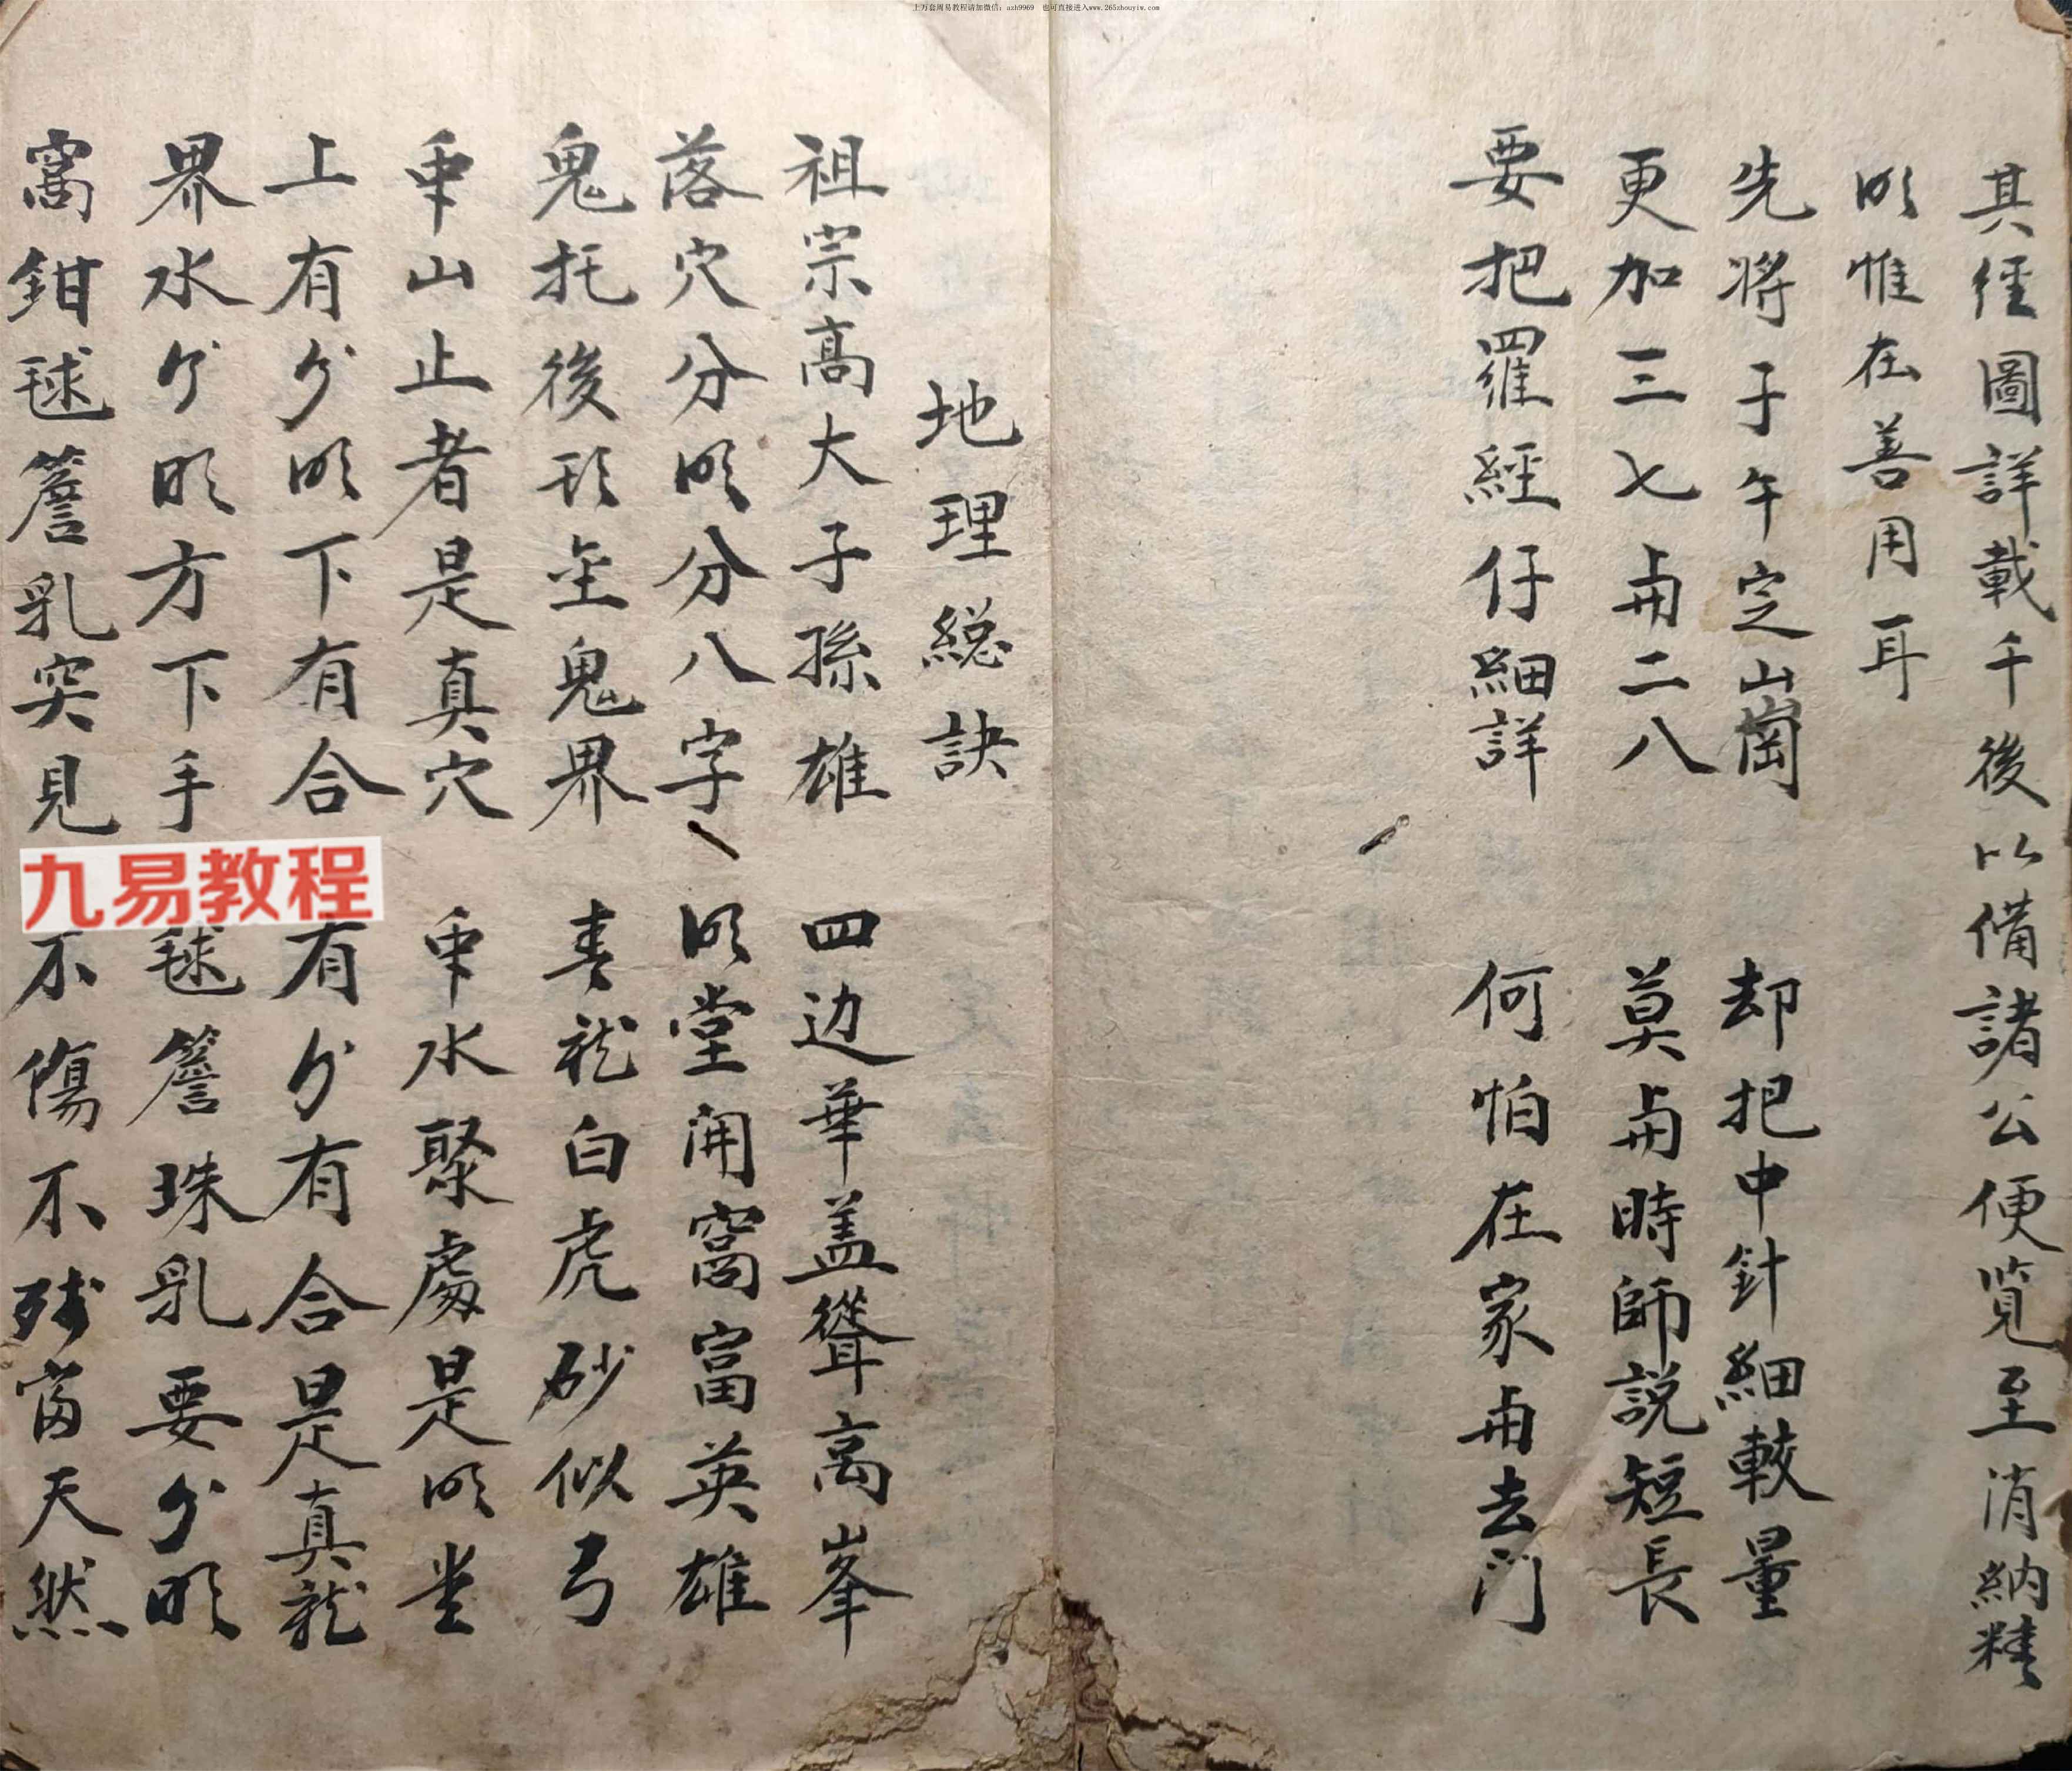 上万套周易教程请加微信：azh9969 也可直接进入www.265zhouyiw.com
其經圖詳載千後以備諸公便覽至消納精
明惟在善用耳
先将子午定山崗 却把中針細較量
更加三七與二八 莫與時師説短長
要把羅經仔細詳 何怕在家與去门
地理総訣
祖宗高大子孫雄 四边華盖聳高峯
落穴分明分八字 明堂開窩富英雄
鬼托後 鬼界 龙白虎砂似弓
山止者是真穴 水聚處是明堂
上有分明下有合 有分有合是真龙
界水分明方下手 毬簷珠乳要分明
窩鉗毬簷乳突見 不傷不残 天然
九易教程